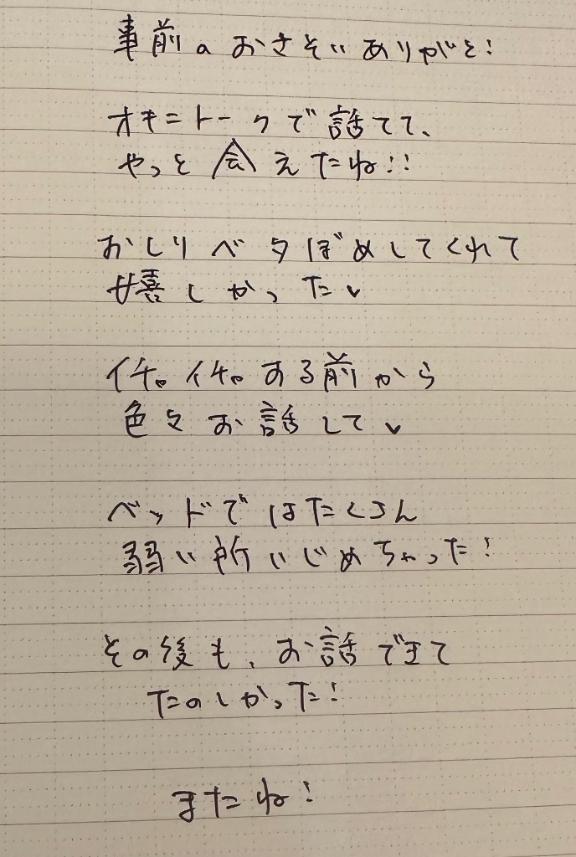 事前のおさそいありがと!
オキニトークで話てて、
やっと会えたね!!
おしりベタぼめしてくれて
嬉しかった♥
イチャイチャする前から
色々お話して♥
ベッドではたくさん
弱い所いじめちゃった!
その後も、お話できて
たのしかった!
またね!